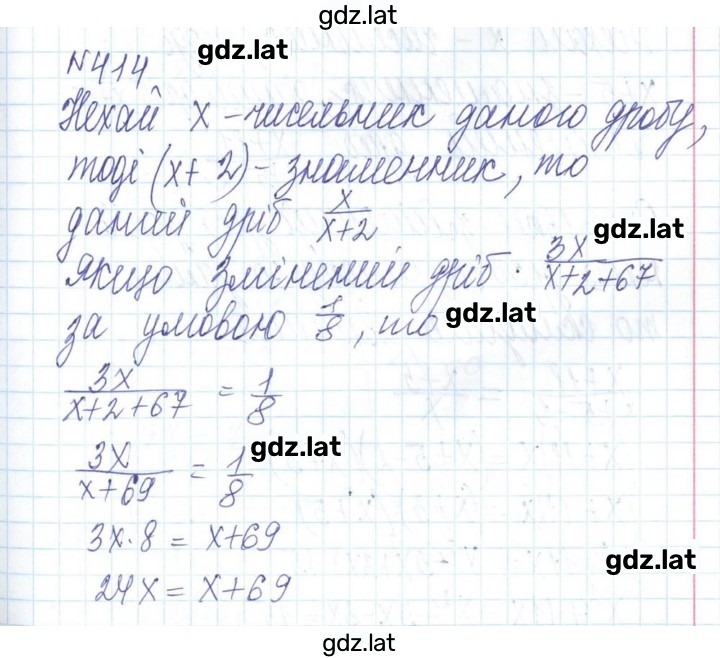 gdz.lat
№414 gdz.lat
Нехай x - чисельник даного дробу,
тоді (x+2) - знаменник, то
даний дріб x/(x+2) gdz.lat
Якщо змінений дріб 3x/(x+2+67)
за умовою 1/8, то gdz.lat
3x/(x+2+67) = 1/8
3x/(x+69) = 1/8 gdz.lat
3x·8 = x+69
gdz.lat
24x = x+69
gdz.lat